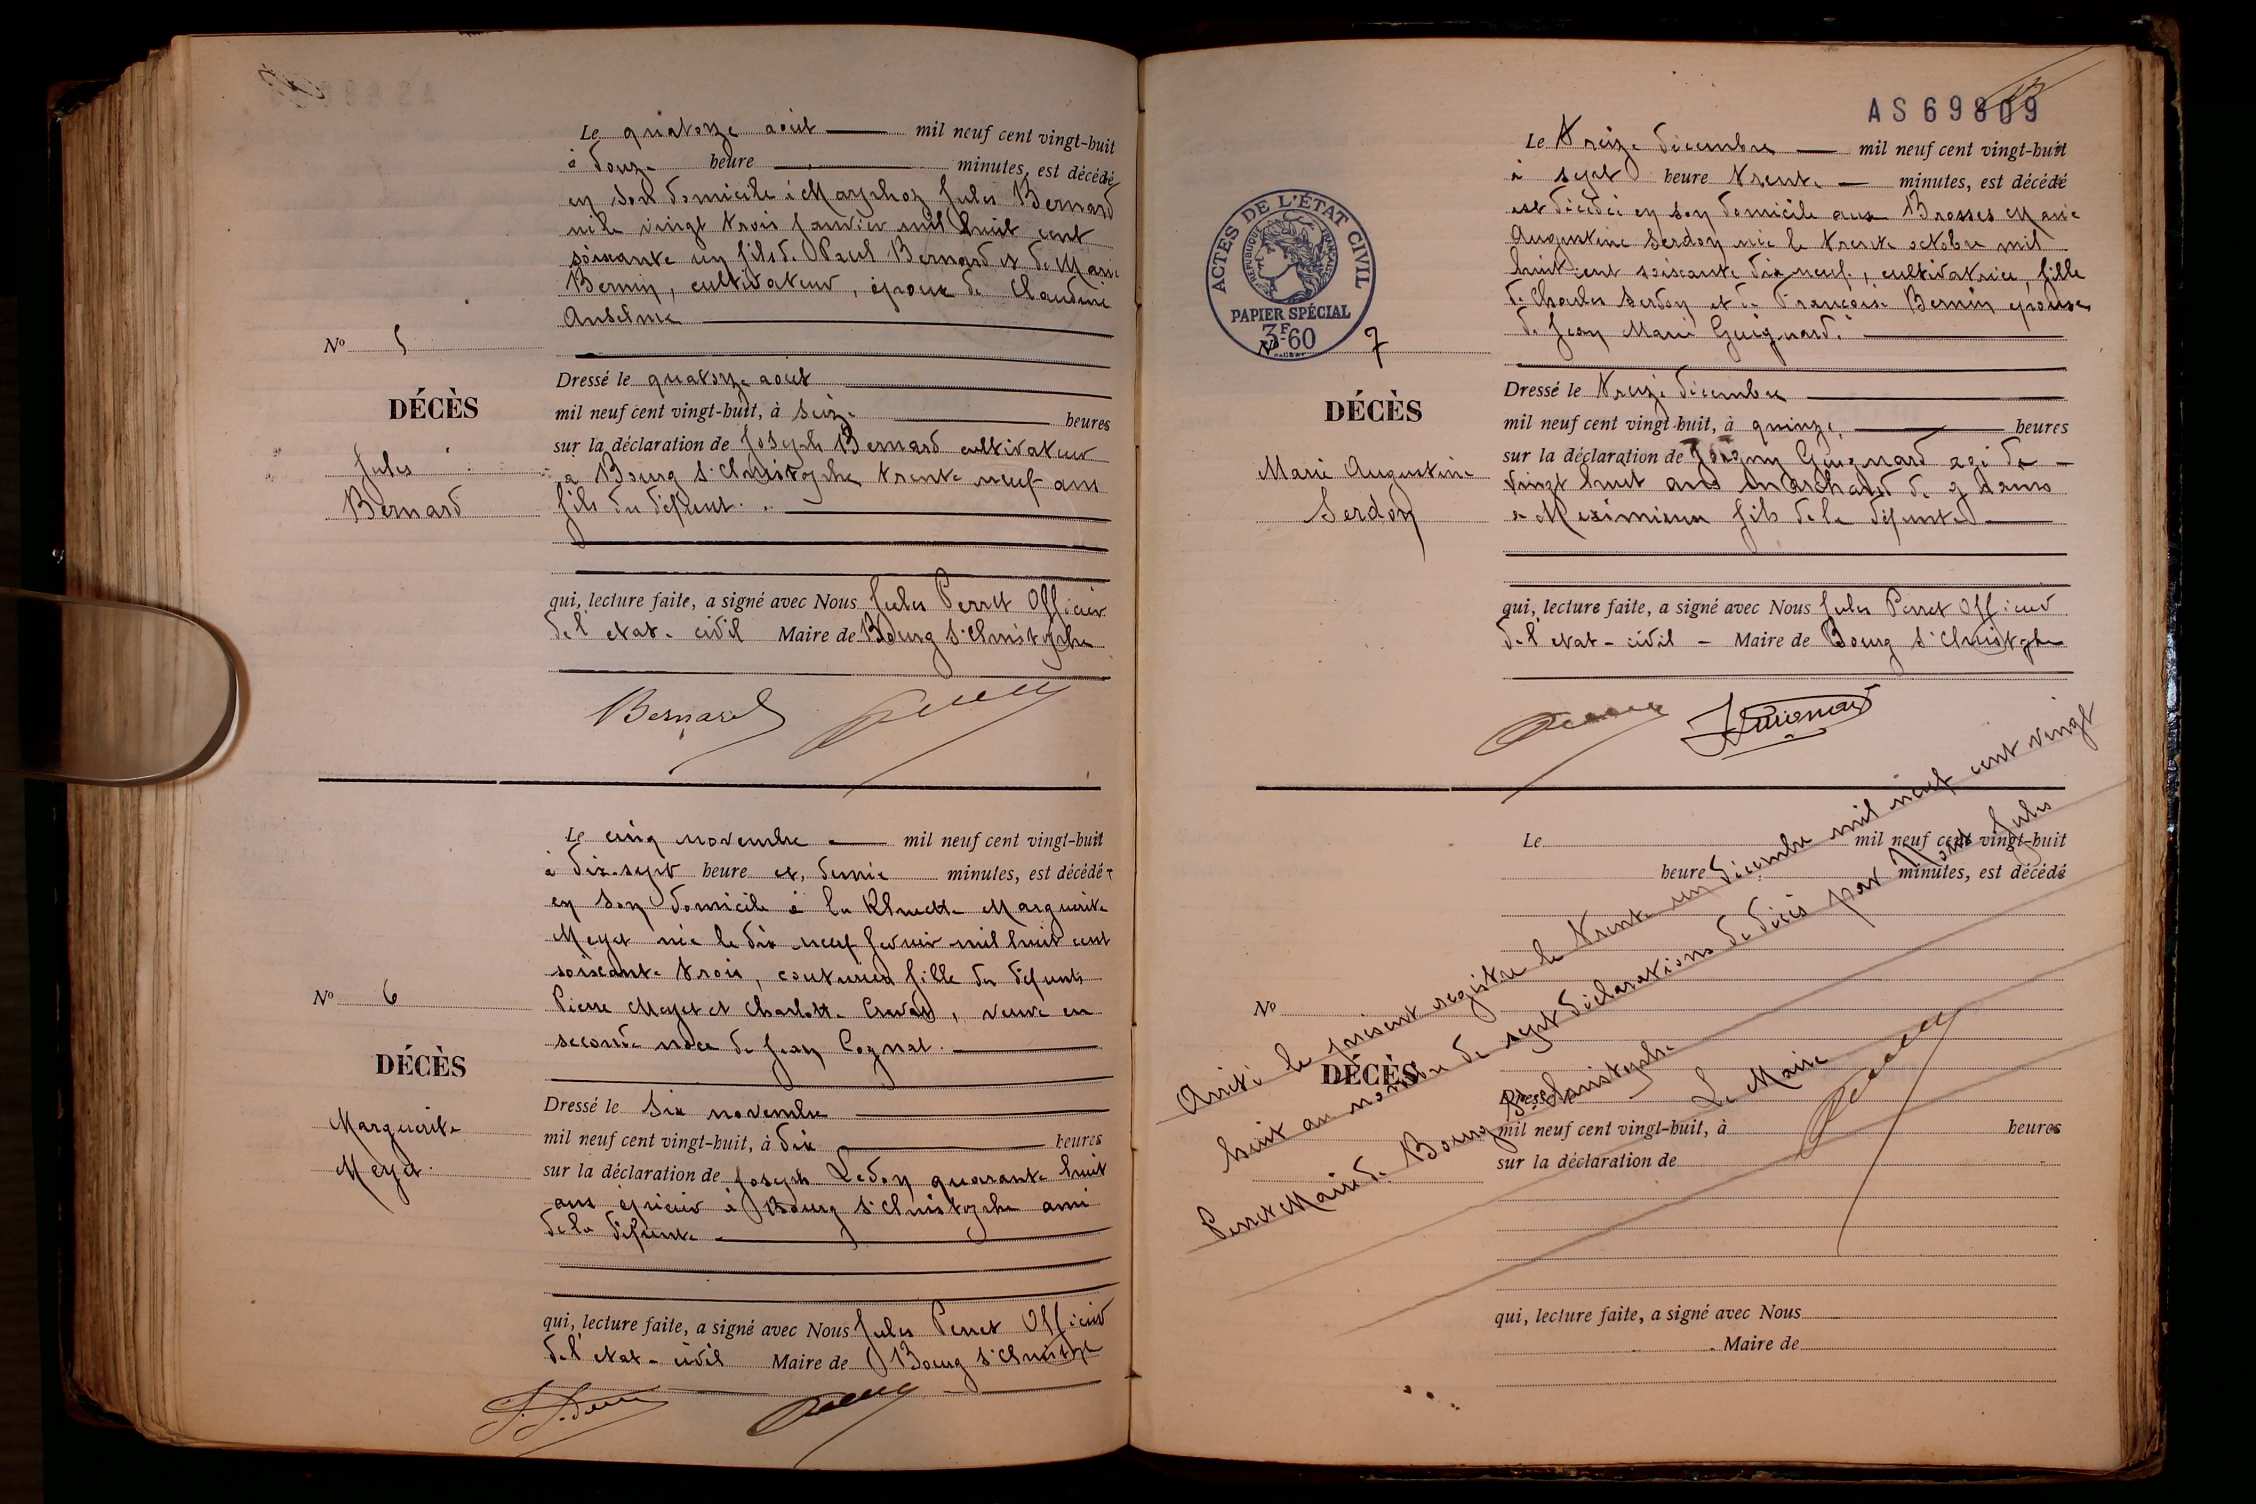 Le quatorze août mil neuf cent vingt-huit
à douze heure minutes, est décédé
en son domicile à Marphoz Jules Bernard
né le vingt trois janvier mil huit cent
soixante un fils de Paul Bernard et de Marie
Bernin, cultivateur, époux de Claudine
Anselme
Nº 5
DÉCÈS
Jules
Bernard
Dressé le quatorze août
mil neuf cent vingt-huit, à seize heures
sur la déclaration de Joseph Bernard cultivateur
a Bourg St Christophe trente neuf ans
fils du défunt.
qui, lecture faite, a signé avec Nous Jules Perret Officier
de l'etat-civil Maire de Bourg St Christophe
Bernard
Le cinq novembre mil neuf cent vingt-huit
à dix-sept heure et demie minutes, est décédé
en son domicile à la Marguerite
Meyet née le dix neuf mil huit cent
soixante trois, fille des défunts
Pierre Meyet et Charlotte, veuve en
seconde noce de Jean Cognat.
Nº 6
DÉCÈS
Marguerite
Meyet.
Dressé le six novembre
mil neuf cent vingt-huit, à dix heures
sur la déclaration de Joseph Ledon quarante huit
ans epicier à Bourg St Christophe ami
de la défunte
qui, lecture faite, a signé avec Nous Jules Perret Officier
de l'etat-civil Maire de Bourg St Christophe
AS69809
Le treize décembre mil neuf cent vingt-huit
à sept heure trente minutes, est décédé
est décédée en son domicile aux Brosses Marie
Augustine Serdon née le trente octobre mil
huit cent soixante dix neuf, cultivatrice, fille
de Charles Serdon et de Francoise Bernin epouse
de Jean Marie Guignard.
ACTES DE L'ÉTAT CIVIL
RÉPUBLIQUE FRANÇAISE
PAPIER SPÉCIAL
3F60
Nº 7
DÉCÈS
Marie Augustine
Serdon
Dressé le treize décembre
mil neuf cent vingt-huit, à quinze heures
sur la déclaration de Guignard agé de
vingt huit ans marchand de grains
a Meximieux fils de la défunte
qui, lecture faite, a signé avec Nous Jules Perret Officier
de l'etat-civil Maire de Bourg St Christophe
Guignard
Le mil neuf cent vingt-huit
heure minutes, est décédé
Nº
DÉCÈS
Dressé le
mil neuf cent vingt-huit, à heures
sur la déclaration de
qui, lecture faite, a signé avec Nous
Maire de
Arrêté le présent registre le trente un décembre mil neuf cent vingt
huit au nombre de sept déclarations de décès par Nous Jules
Perret Maire de Bourg St Christophe
Le Maire